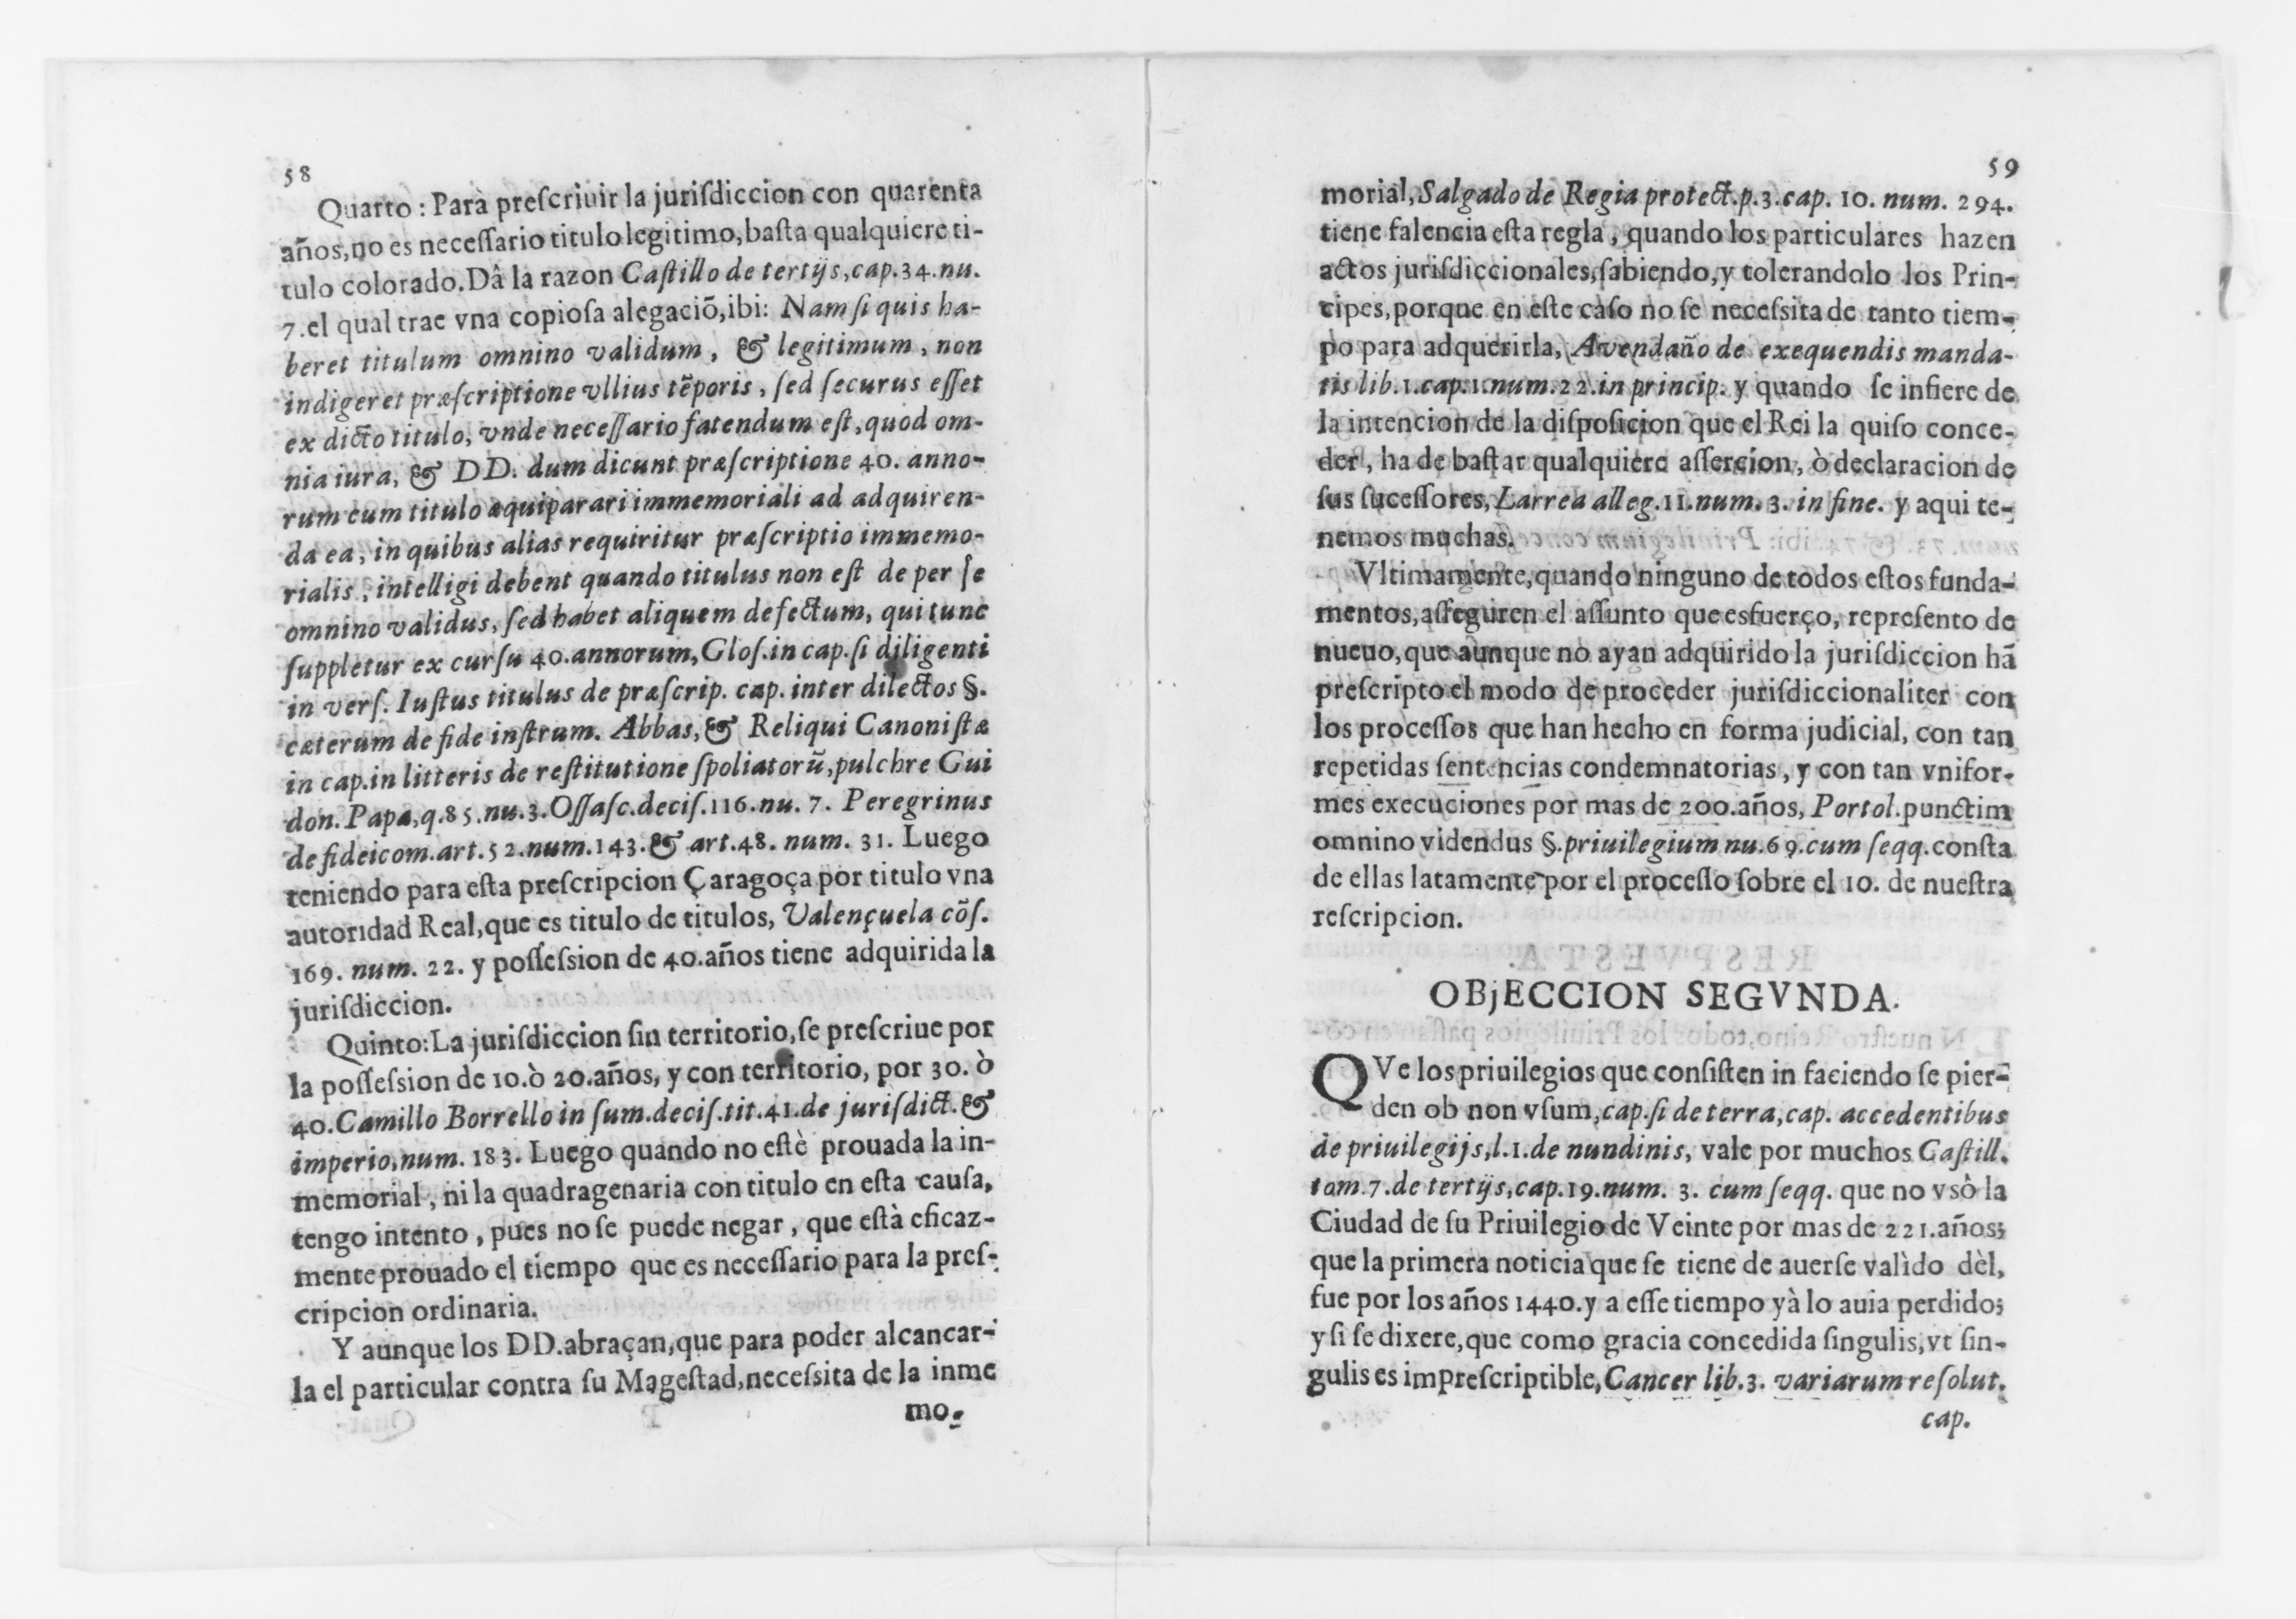 58
Quarto : Parà preſcriuir la juriſdiccion con quarenta
años,no es neceſſario titulo legitimo,baſta qualquiere ti-
tulo colorado.Dâ la razon Caſtillo de tertijs,cap.34.nu.
7.el qual trae vna copioſa alegaciõ,ibi: Nam ſi quis ha-
beret titulum omnino validum, & legitimum, non
indigeret præſcriptione vllius tẽporis, ſed ſecurus eſſet
ex dicto titulo, vnde neceſſario fatendum eſt,quod om-
nia iura, & DD. dum dicunt præſcriptione 40. anno-
rum cum titulo æquiparari immemoriali ad adquiren-
da ea, in quibus alias requiritur præſcriptio immemo-
rialis, intelligi debent quando titulus non eſt de per ſe
omnino validus, ſed habet aliquem defectum, qui tunc
ſuppletur ex curſu 40.annorum,Gloſ.in cap.ſi diligenti
in verſ. Iuſtus titulus de præſcrip. cap. inter dilectos §.
cæterum de fide inſtrum. Abbas,& Reliqui Canoniſtæ
in cap.in litteris de reſtitutione ſpoliatorũ,pulchre Gui
don. Papa,q.85.nu.3.Oſſaſc.deciſ.116.nu. 7. Peregrinus
de fideicom.art.52.num.143.& art.48. num. 31. Luego
teniendo para eſta preſcripcion Çaragoça por titulo vna
autoridad Real,que es titulo de titulos, Valençuela cõſ.
169. num. 22. y poſſeſsion de 40.años tiene adquirida la
juriſdiccion.
Quinto:La juriſdiccion ſin territorio,ſe preſcriue por
la poſſeſsion de 10.ò 20.años, y con territorio, por 30. ò
40.Camillo Borrello in ſum.deciſ.tit.41.de juriſdict.&
imperio,num. 183. Luego quando no eſtè prouada la in-
memorial, ni la quadragenaria con titulo en eſta cauſa,
tengo intento, pues no ſe puede negar, que eſtà eficaz-
mente prouado el tiempo que es neceſſario para la preſ-
cripcion ordinaria.
Y aunque los DD.abraçan,que para poder alcancar-
la el particular contra ſu Mageſtad,neceſsita de la inme
mo-
59
morial,Salgado de Regia protect.p.3.cap. 10. num. 294.
tiene falencia eſta regla, quando los particulares hazen
actos juriſdiccionales,ſabiendo,y tolerandolo los Prin-
cipes,porque en eſte caſo no ſe neceſsita de tanto tiem-
po para adquerirla, Avendaño de exequendis manda-
tis lib.1.cap.1.num.22.in princip. y quando ſe infiere de
la intencion de la diſpoſicion que el Rei la quiſo conce-
der, ha de baſtar qualquiere aſſercion, ò declaracion de
ſus ſuceſſores, Larrea alleg.11.num. 3. in fine. y aqui te-
nemos muchas.
Vltimamente,quando ninguno de todos eſtos funda-
mentos,aſſeguren el aſſunto que esfuerço, repreſento de
nueuo,que aunque no ayan adquirido la juriſdiccion hã
preſcripto el modo de proceder juriſdiccionaliter con
los proceſſos que han hecho en forma judicial, con tan
repetidas ſentencias condemnatorias, y con tan vnifor-
mes execuciones por mas de 200.años, Portol.punctim
omnino videndus §.priuilegium nu.69.cum ſeqq.conſta
de ellas latamente por el proceſſo ſobre el 10. de nueſtra
reſcripcion.
OBjECCION SEGVNDA.
QVe los priuilegios que conſiſten in faciendo ſe pier-
den ob non vſum,cap.ſi de terra,cap. accedentibus
de priuilegijs,l.1.de nundinis, vale por muchos Caſtill.
tom.7.de tertijs,cap.19.num. 3. cum ſeqq. que no vsò la
Ciudad de ſu Priuilegio de Veinte por mas de 221.años;
que la primera noticia que ſe tiene de auerſe valìdo dèl,
fue por los años 1440.y a eſſe tiempo yà lo auia perdido;
y ſi ſe dixere,que como gracia concedida ſingulis,vt ſin-
gulis es impreſcriptible,Cancer lib.3. variarum reſolut.
cap.